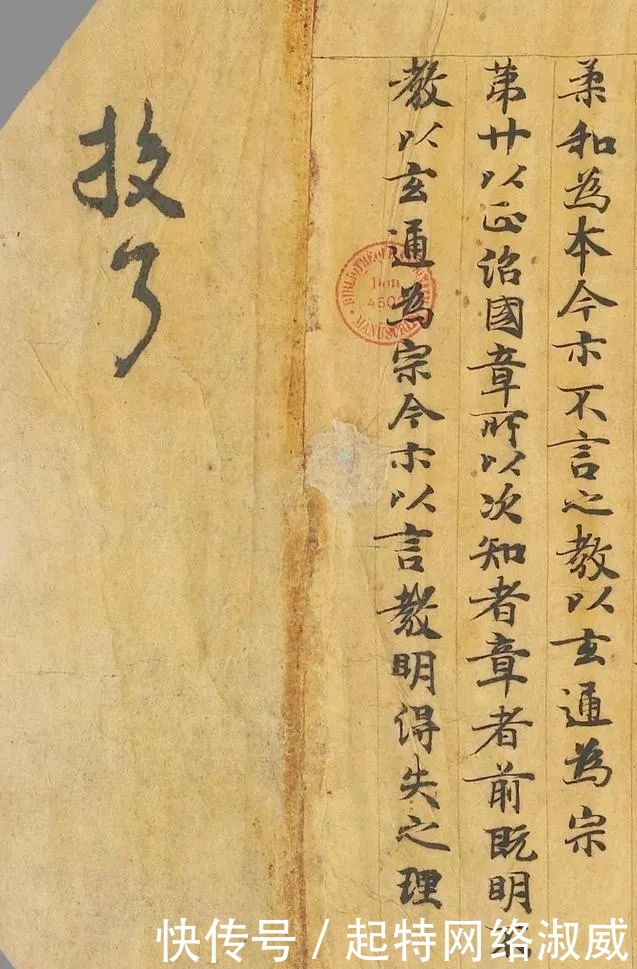 柔和為本今亦不言之教以玄通為宗
第廿以正治國章所以次知者章者前既明
教以玄通為宗今亦以言教明得失之理
了
Don
MANUSCRITS
快传号 / 起特网络淑威